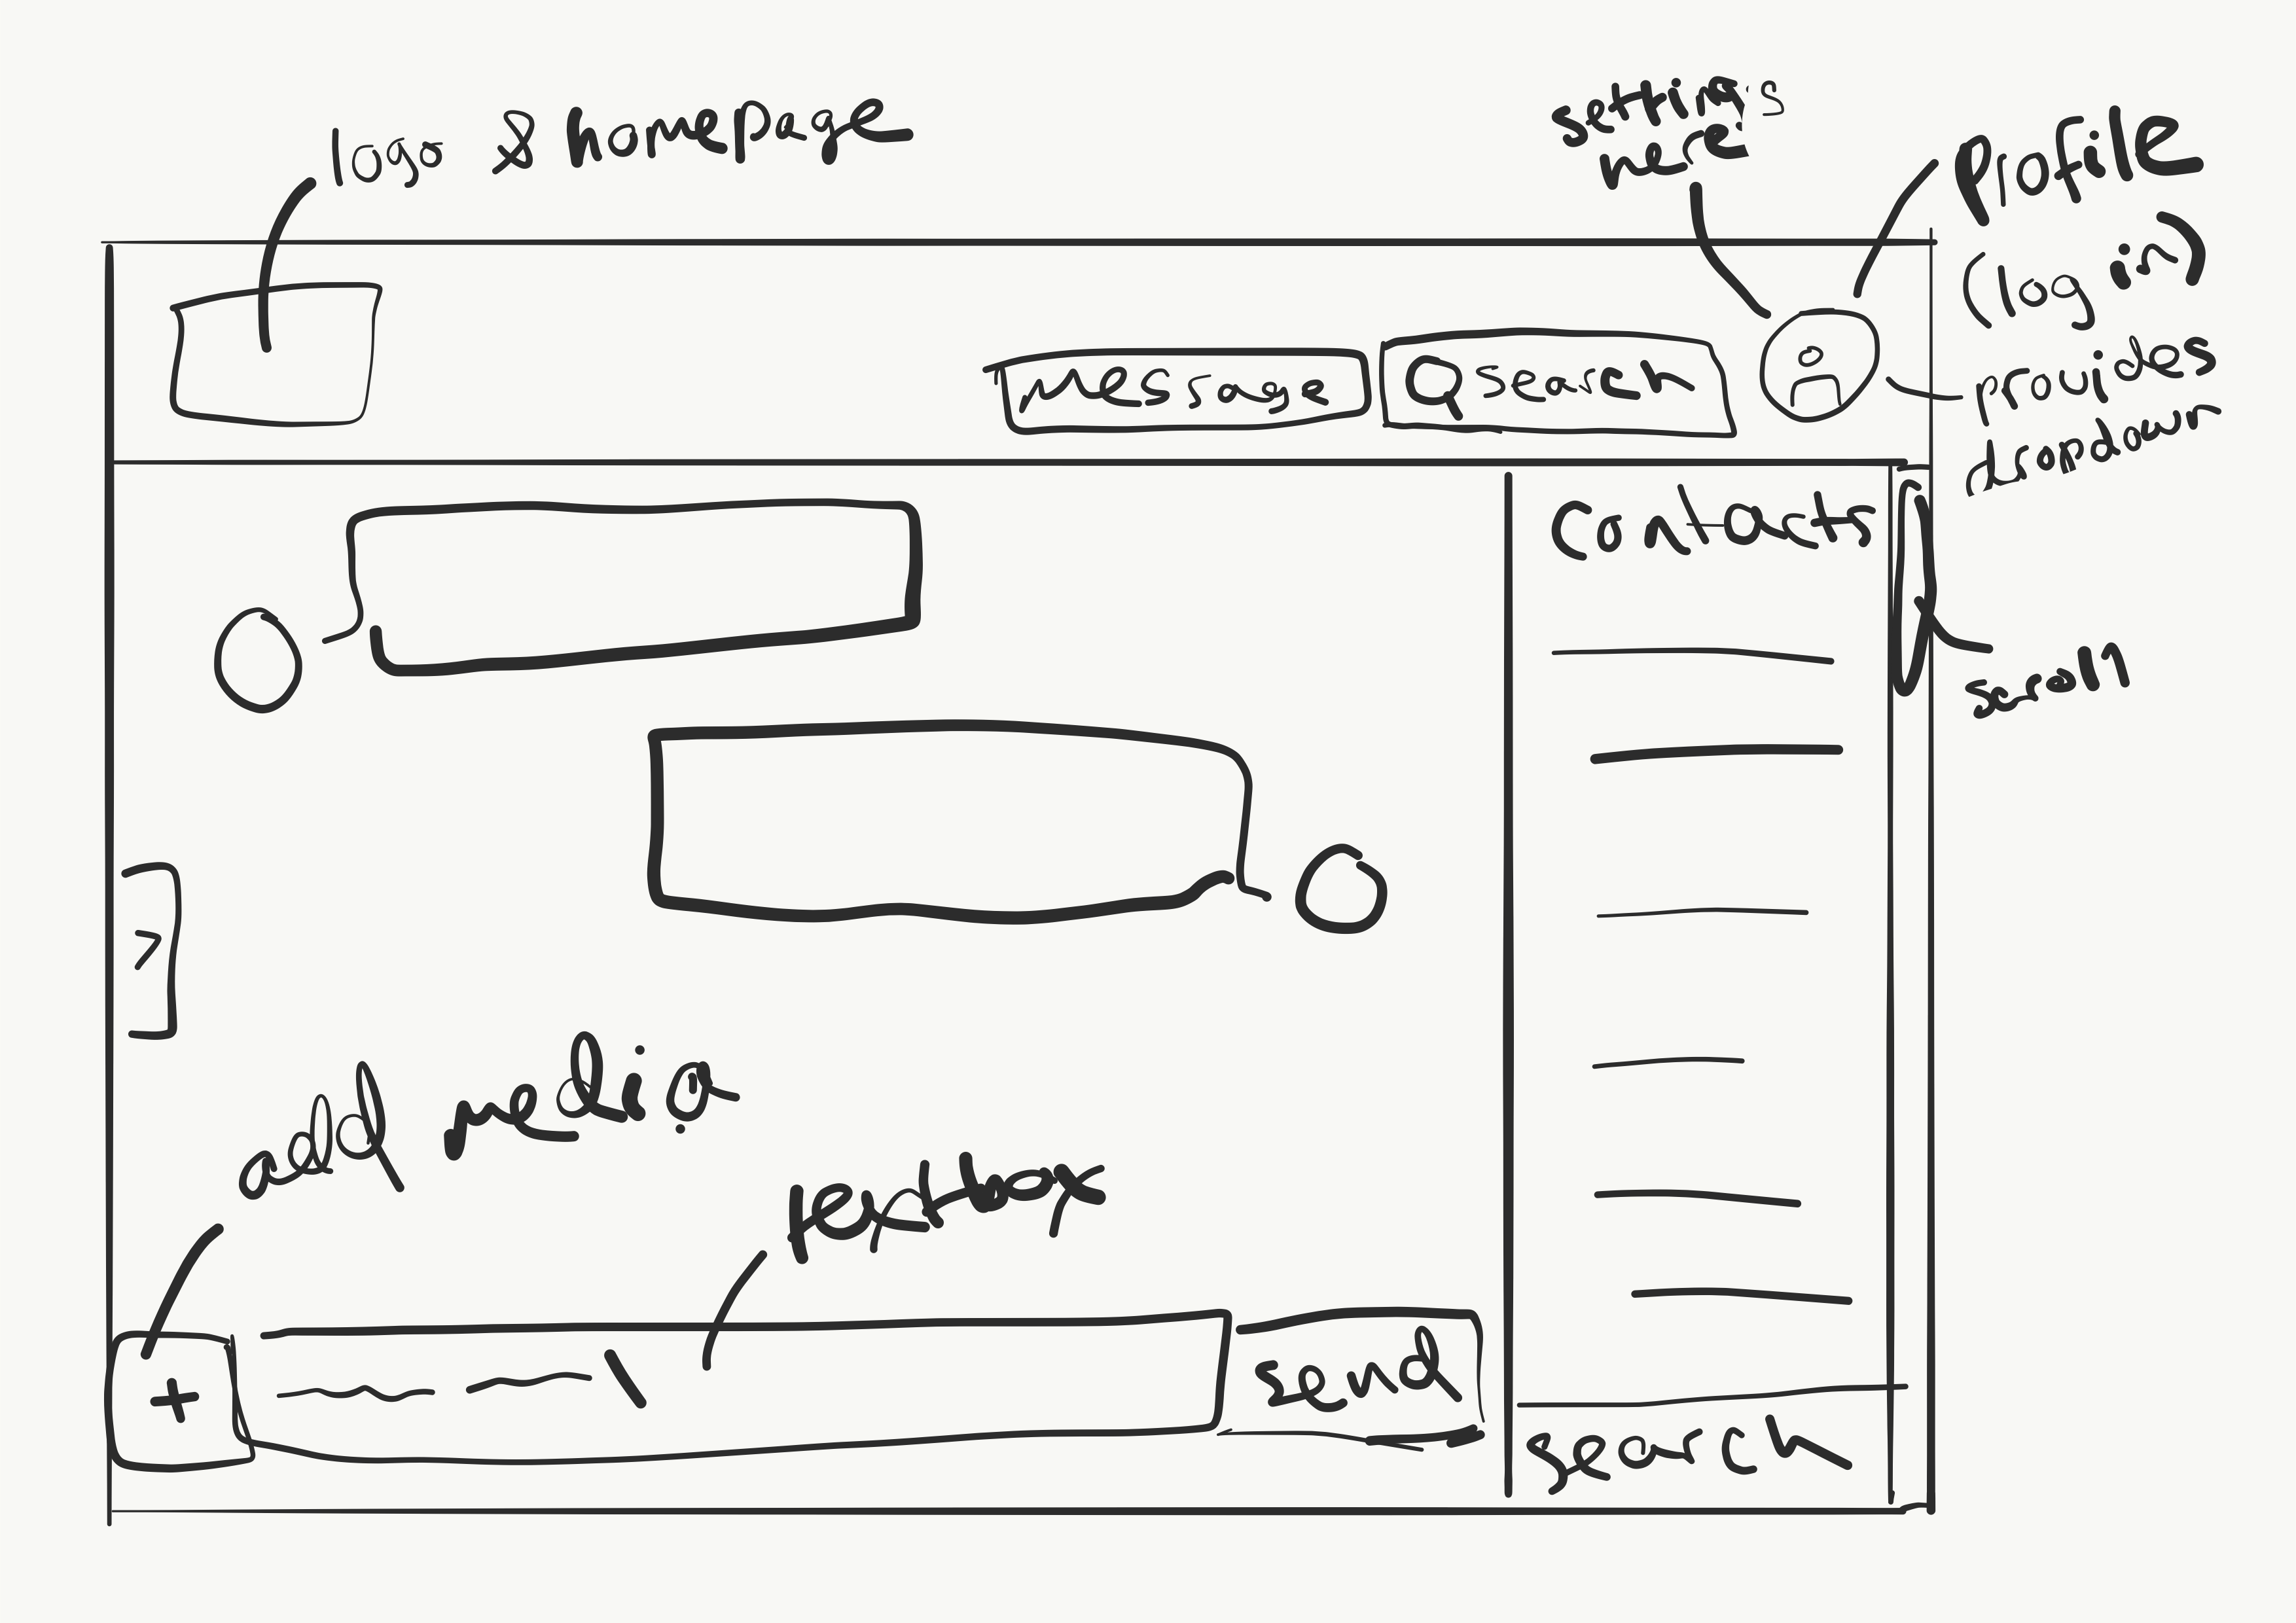 logo & homepage
settings
here
Profile
(log in)
provides
dropdown
message
search
contacts
scroll
add media
textbox
+
send
search